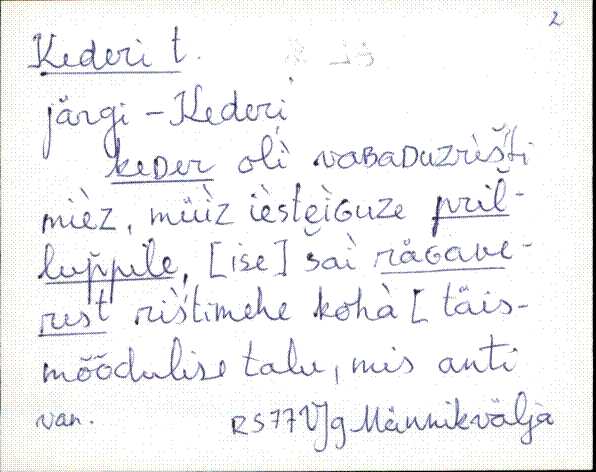 2
Kederi t.
järgi – Kederi
keDer oli vaBaDuzrìšti
mièz, müìz ièsteìGuze pril-
luppile, [ise] šai råGave-
rest rištimehe kohà [täis-
mõõdulise talu, mis anti
van. RS77 VJg Männikväljà